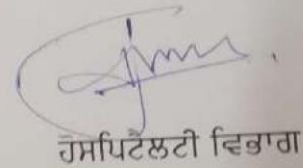 ਹਸਪਿਟੈਲਟੀ ਵਿਭਾਗ